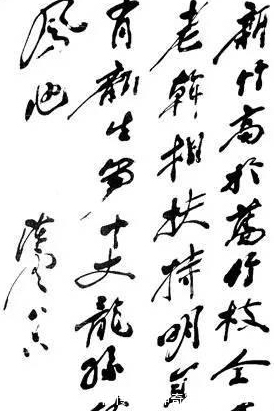 新竹高於舊竹枝全
老幹相扶持明年
有新生十丈龍孫
鳳池